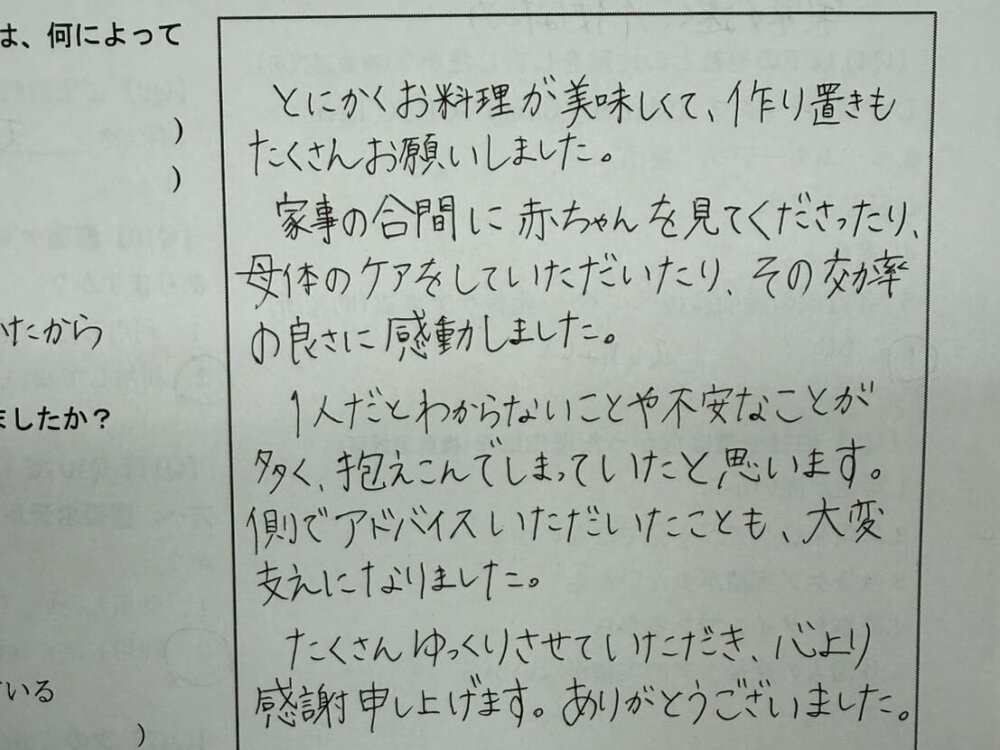 は、何によって
)
)
けたから
ましたか？
ている
)
とにかくお料理が美味しくて、作り置きも
たくさんお願いしました。
家事の合間に赤ちゃんを見てくださったり、
母体のケアをしていただいたり、その効率
の良さに感動しました。
1人だとわからないことや不安なことが
多く、抱えこんでしまっていたと思います。
側でアドバイスいただいたことも、大変
支えになりました。
たくさんゆっくりさせていただき、心より
感謝申し上げます。ありがとうございました。